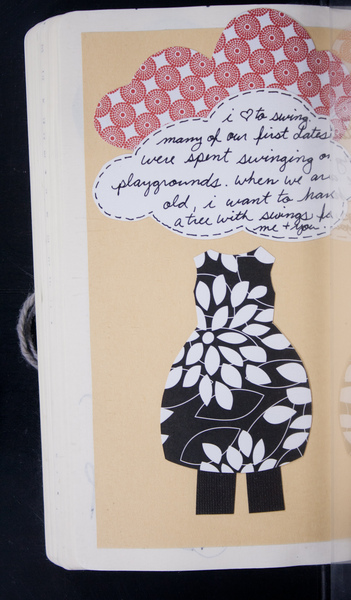 i ♡ to swing.
many of our first dates
were spent swinging on
playgrounds. when we are
old, i want to have
a tree with swings for
me + you.